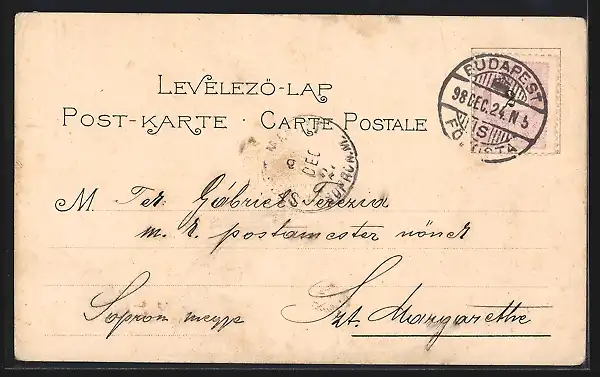 LEVELEZŐ-LAP
POST-KARTE · CARTE POSTALE
BUDAPEST
98 DEC. 24. N 5
FŐPOSTA
DEC
M. Ter. Gábriel Terezia
m. k. postamester nőnek
Sopron megye
Szt. Margarethe